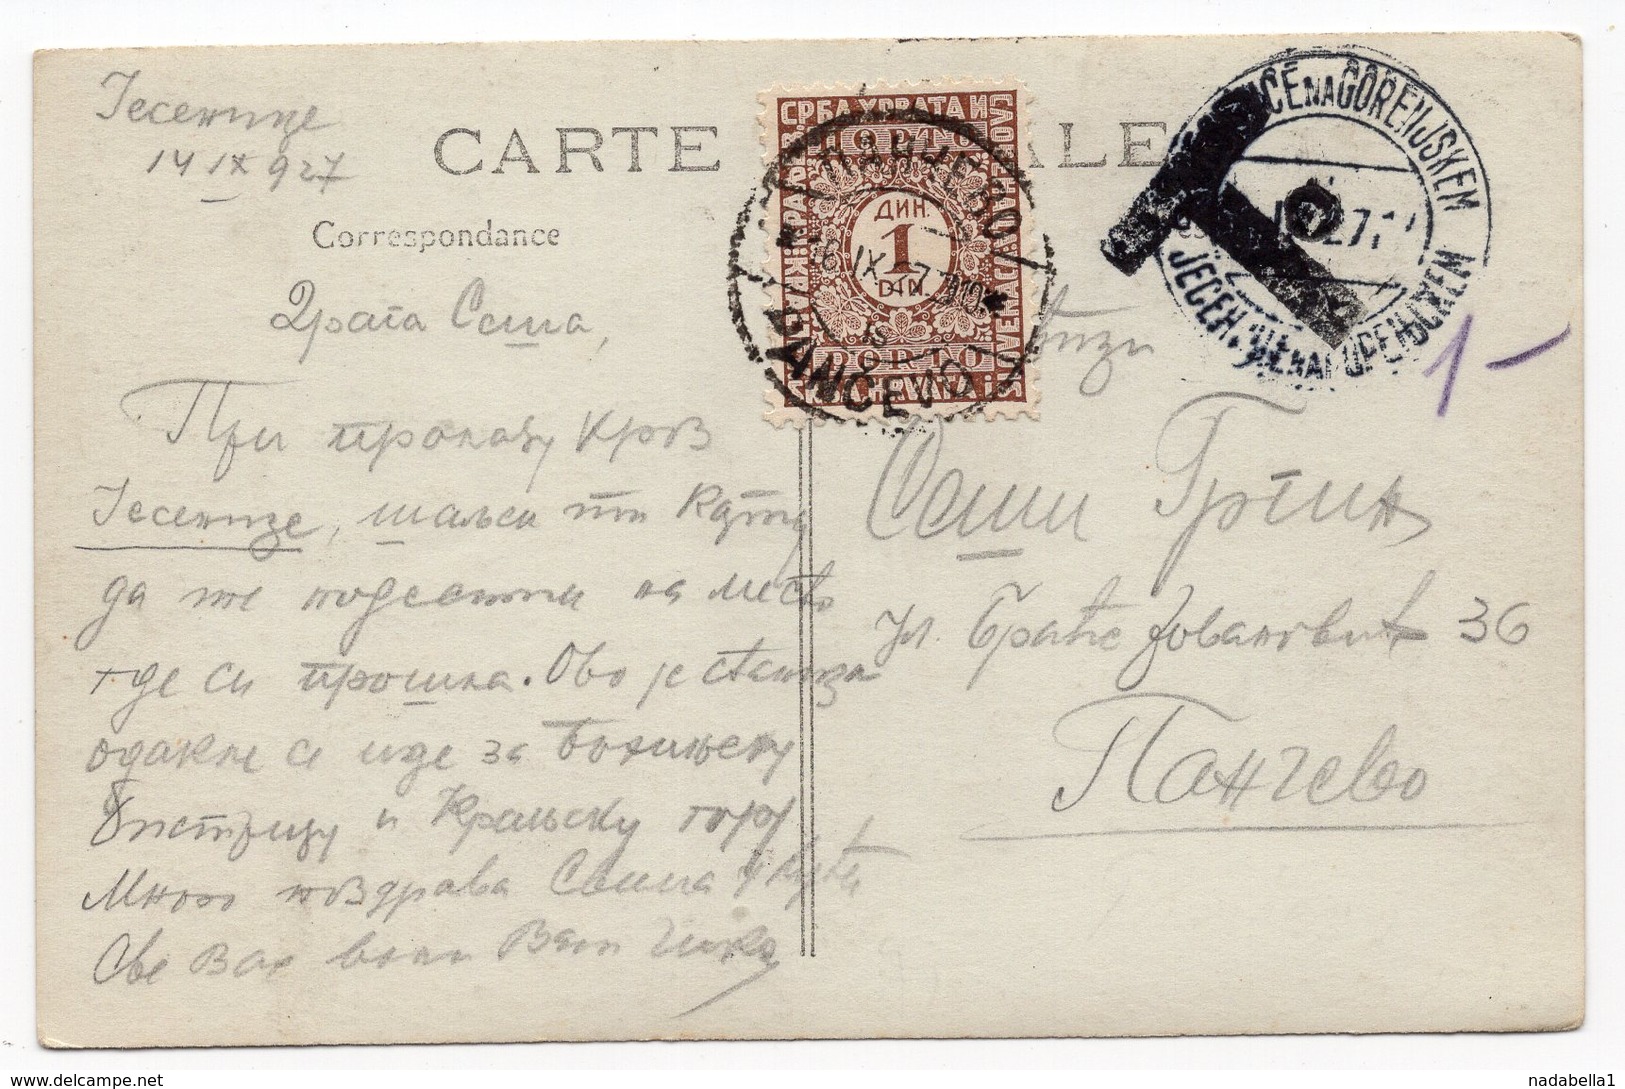 Јесенице
14 IX 927
CARTE
ALE
Correspondance
Драга Сеша,
При пролазу кроз
Јесенице, шаљем ти карту
да те подсети на место
где си прошла. Ово је станица
одакле се иде за Бохињску
Бистрицу и Крањску гору
Много поздрава Сеша
Све вас воли Ваш Чика
СРБА ХРВАТА И
ДИН.
1
DIN.
PORTO
ПАНЧЕВО
16 IX 27
PANČEVO
NA GORENJSKEM
27
1-
Сеши
Ул. Браће Јовановић 36
Панчево
nadabella1
delcampe.net